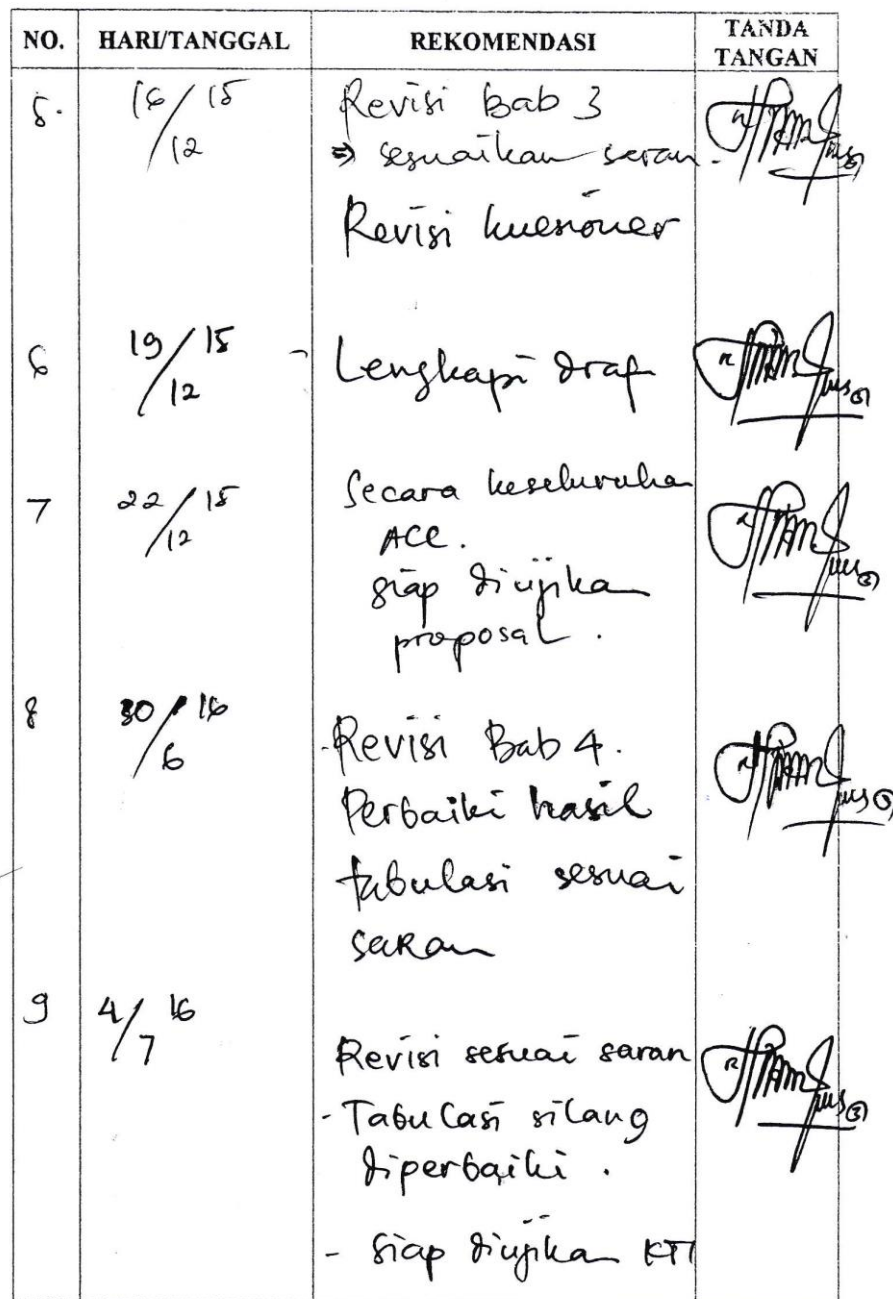 NO. HARI/TANGGAL REKOMENDASI TANDA TANGAN
5. 16/12 15 Revisi Bab 3
⇒ sesuaikan saran.
Revisi kuesioner
6 19/12 15 - Lengkapi draf
7 22/12 15 Secara keseluruha
ACC.
siap diujika
proposal.
8 30/6 16 - Revisi Bab 4.
Perbaiki hasil
tabulasi sesuai
saran
9 4/7 16
Revisi sesuai saran
- Tabulasi silang
diperbaiki.
- siap diujikan KTI